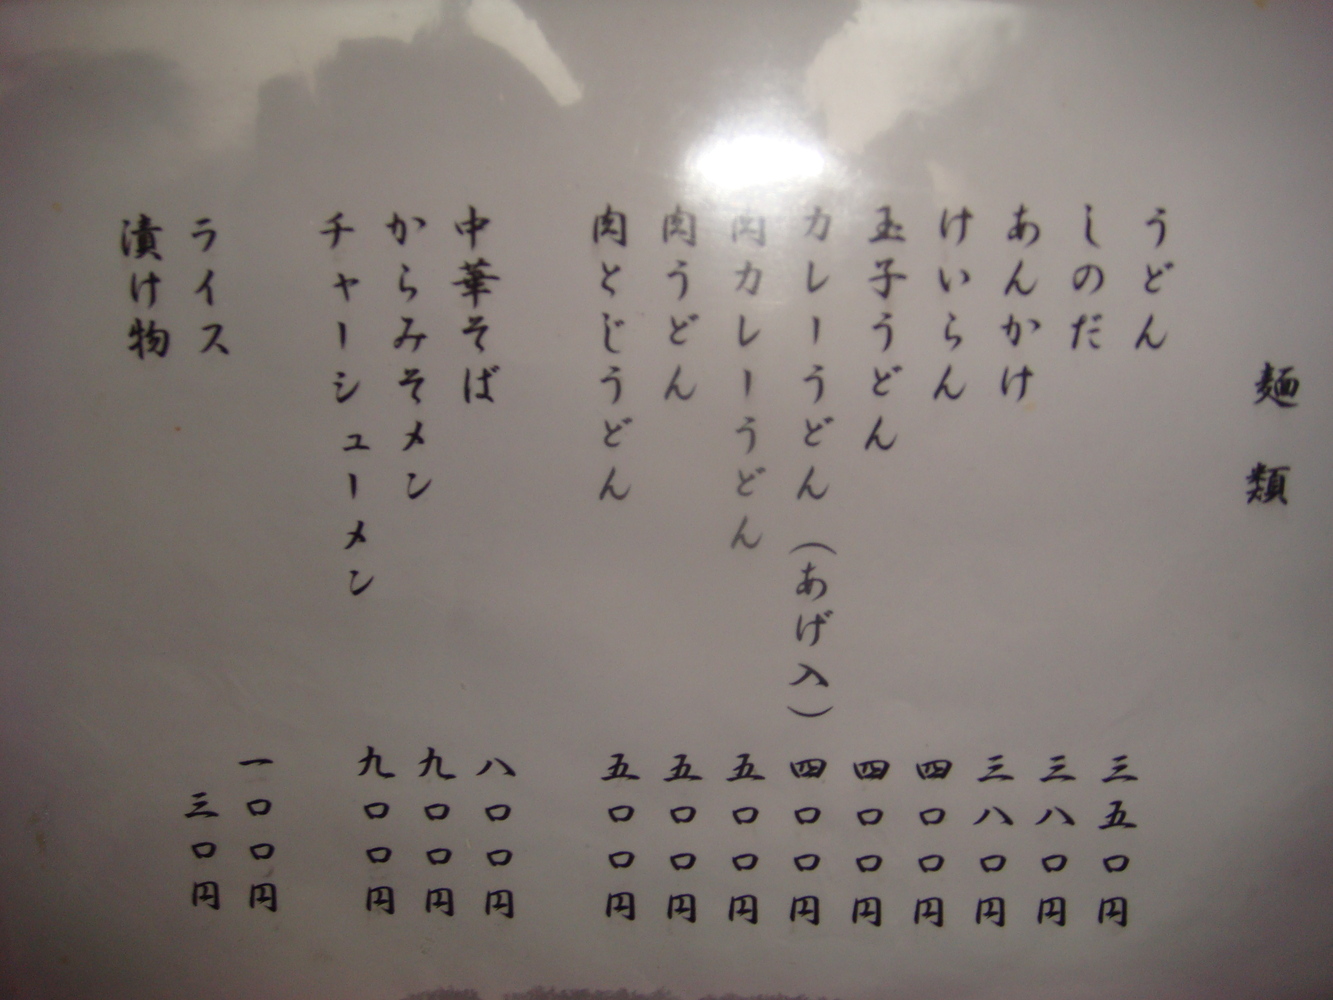 麺類
うどん 三五〇円
しのだ 三八〇円
あんかけ 三八〇円
けいらん 四〇〇円
玉子うどん 四〇〇円
カレーうどん（あげ入） 四〇〇円
肉カレーうどん 五〇〇円
肉うどん 五〇〇円
肉とじうどん 五〇〇円
中華そば 八〇〇円
からみそメン 九〇〇円
チャーシューメン 九〇〇円
ライス 一〇〇円
漬け物 三〇円